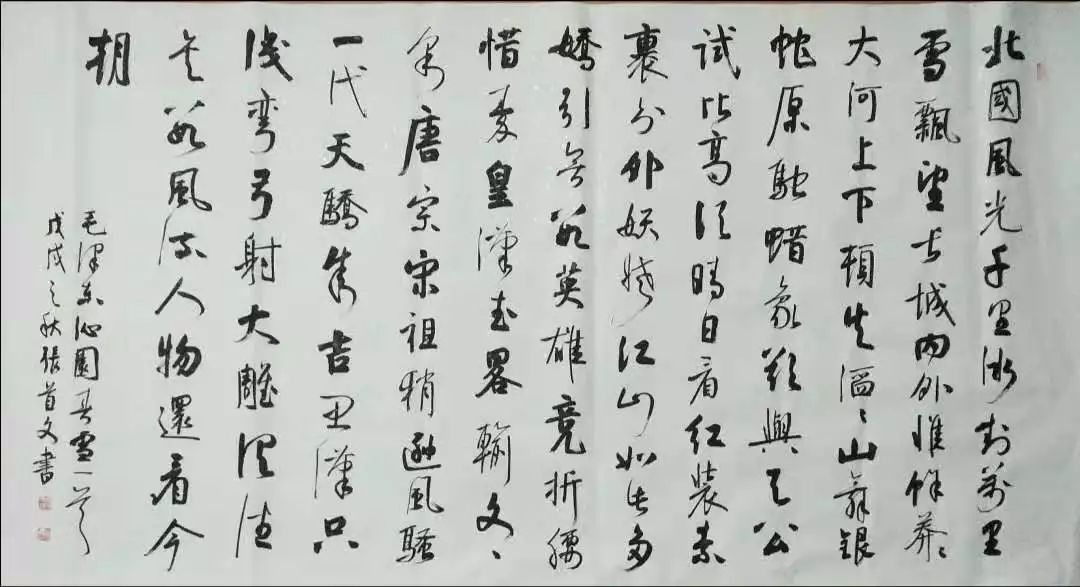 北國風光千里冰封萬里
雪飄望長城内外惟餘莽〻
大河上下頓失滔〻山舞銀
蛇原馳蜡象欲與天公
試比高須晴日看紅裝素
裹分外妖嬈江山如此多
嬌引無數英雄競折腰
惜秦皇漢武畧輸文〻
采唐宗宋祖稍遜風騷
一代天驕成吉思漢只
識彎弓射大雕俱往
矣數風流人物還看今
朝
毛澤東沁園春雪一首
戊戌之秋張首文書